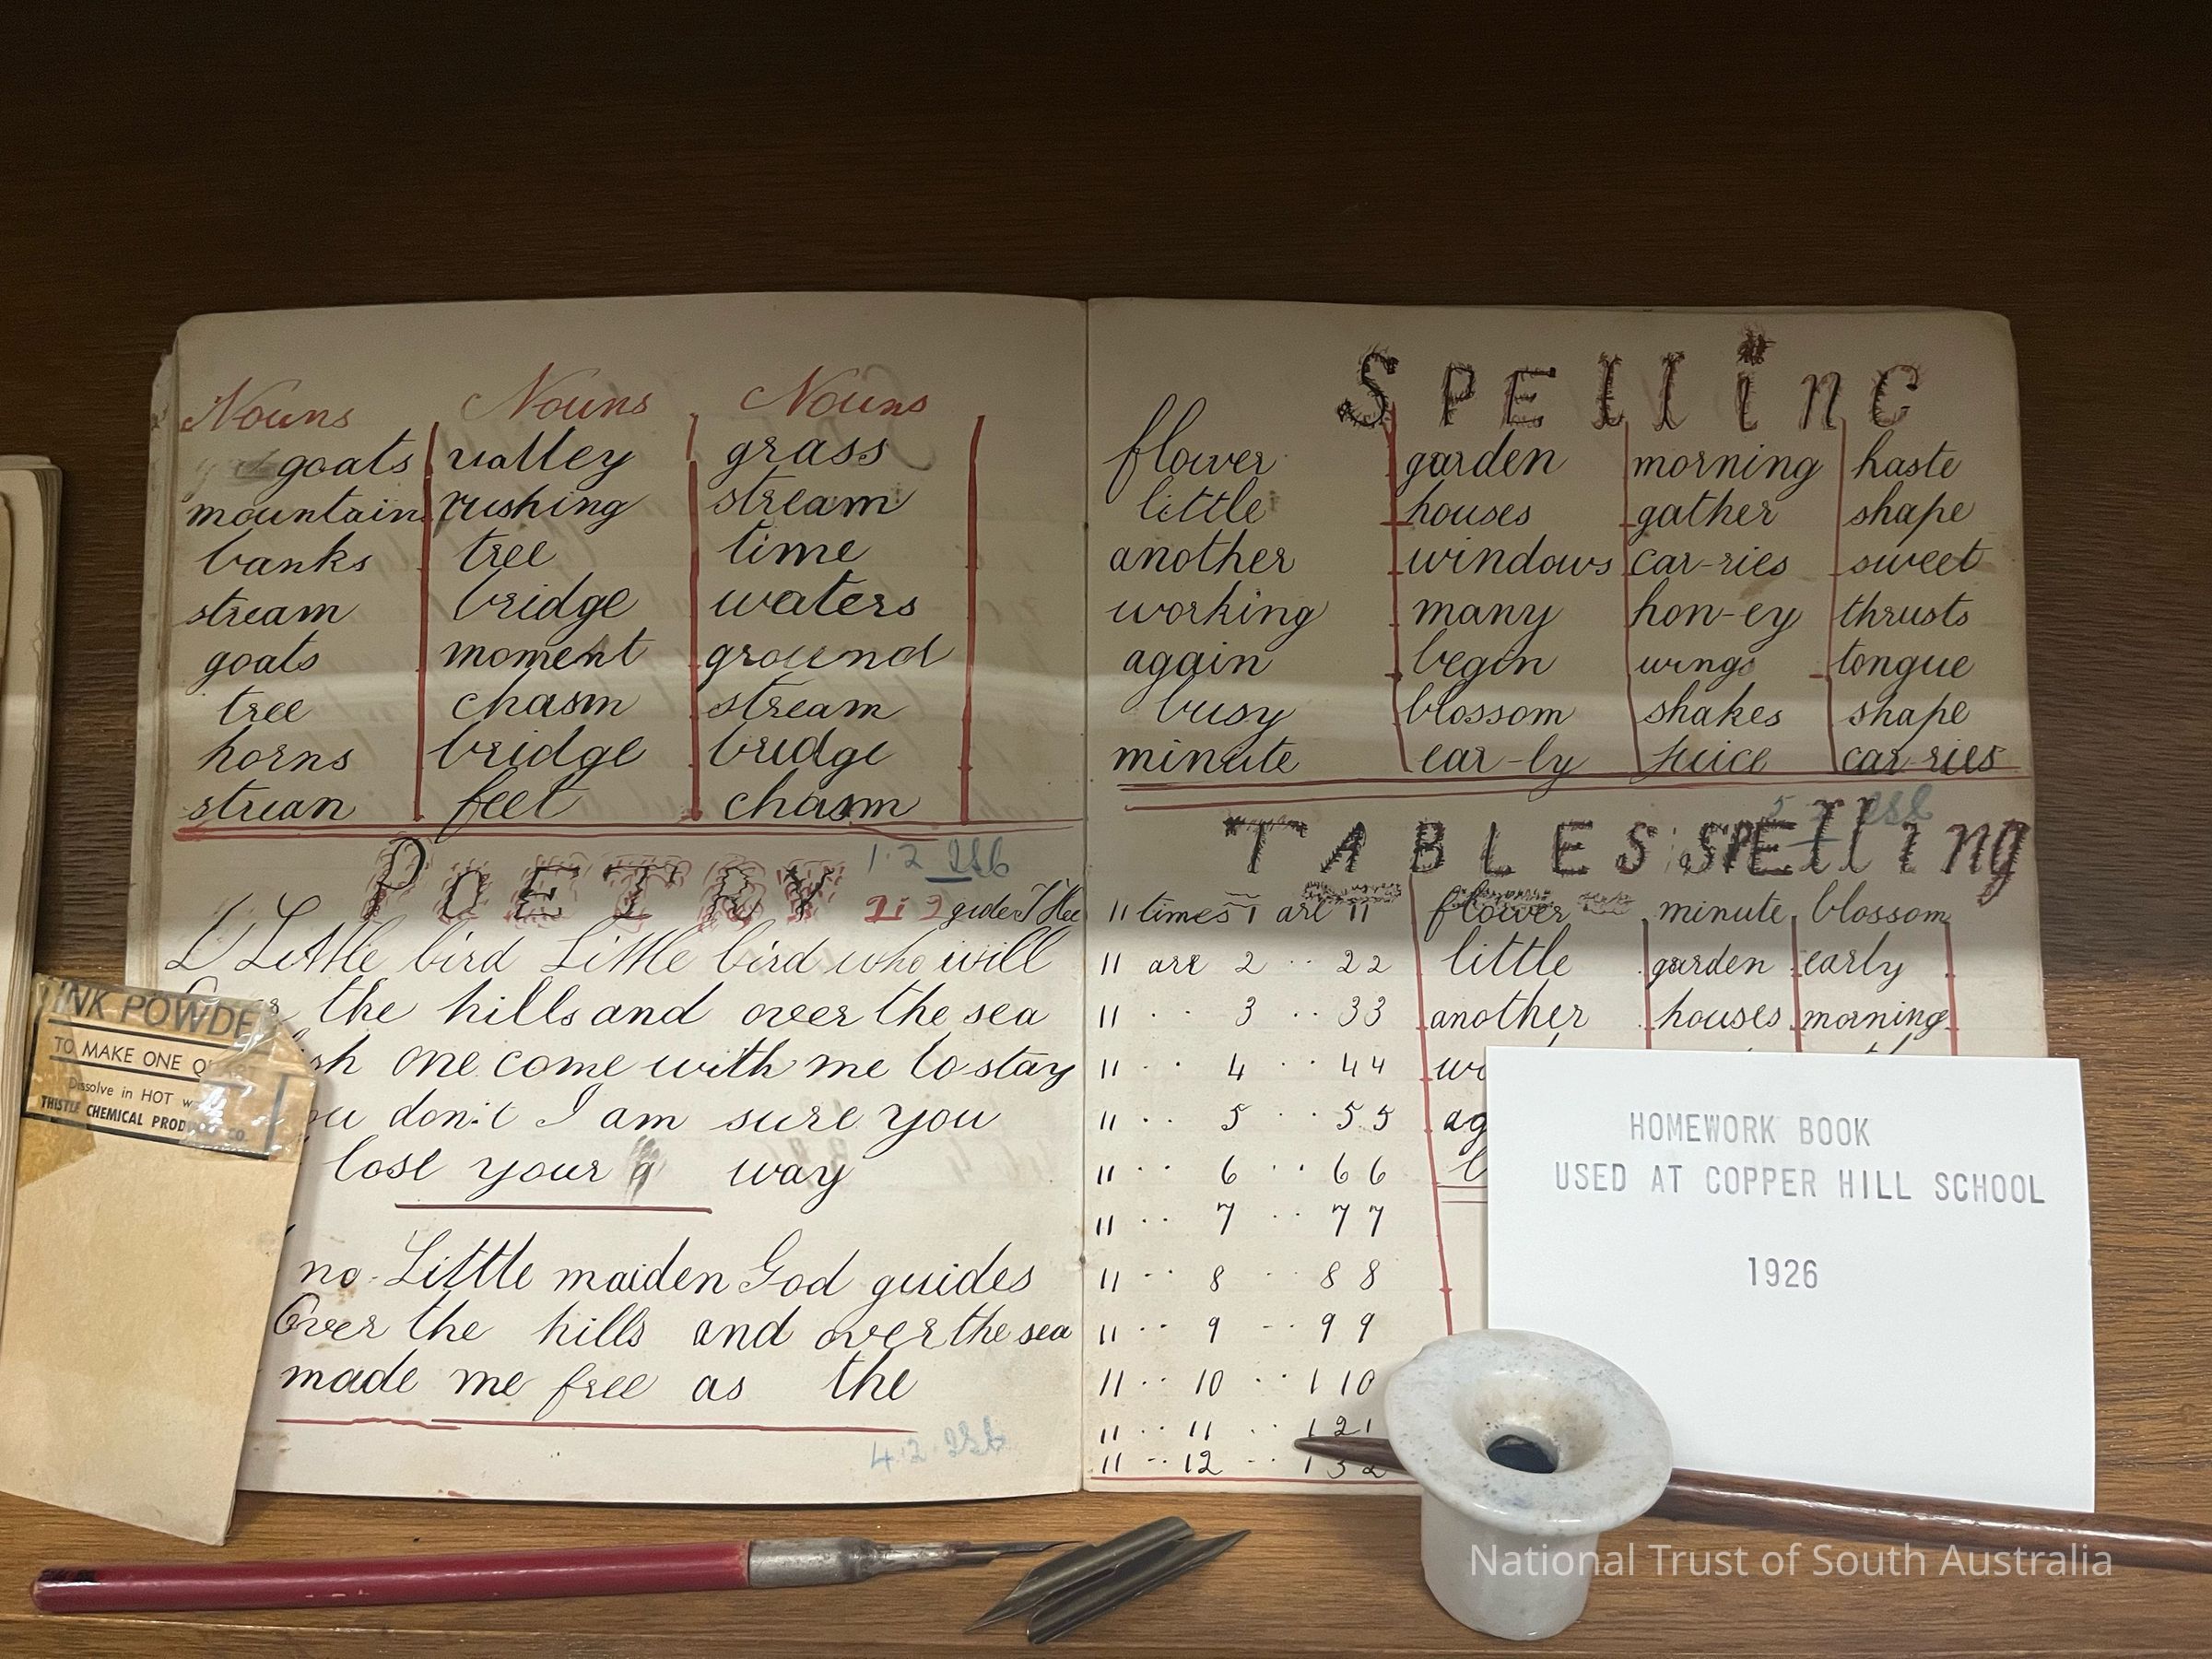 Nouns Nouns Nouns
goats valley grass
mountain rushing stream
banks tree time
stream bridge waters
goats moment ground
tree chasm stream
horns bridge bridge
strean feet chasm
POETRY 1.2
guide Thee
Little bird Little bird who will
the hills and over the sea
sh one come with me to stay
ou don't I am sure you
lose your way
no Little maiden God guides
Over the hills and over the sea
made me free as the
4.2
SPEllinG
flower garden morning haste
little houses gather shape
another windows car-ries sweet
working many hon-ey thrusts
again begin wings tongue
busy blossom shakes shape
minute ear-ly juice car-ries
TABLES SPElling
11 times 1 are 11 flower minute blossom
11 are 2 .. 22 little garden early
11 .. 3 .. 33 another houses morning
11 .. 4 .. 44 wo
11 .. 5 .. 55 ag
11 .. 6 .. 66 b
11 .. 7 .. 77
11 .. 8 .. 88
11 .. 9 .. 99
11 .. 10 .. 110
11 .. 11 .. 121
11 .. 12 .. 132
INK POWDE
TO MAKE ONE QUART
Dissolve in HOT w
THISTLE CHEMICAL PRODUCTS CO.
HOMEWORK BOOK
USED AT COPPER HILL SCHOOL
1926
National Trust of South Australia